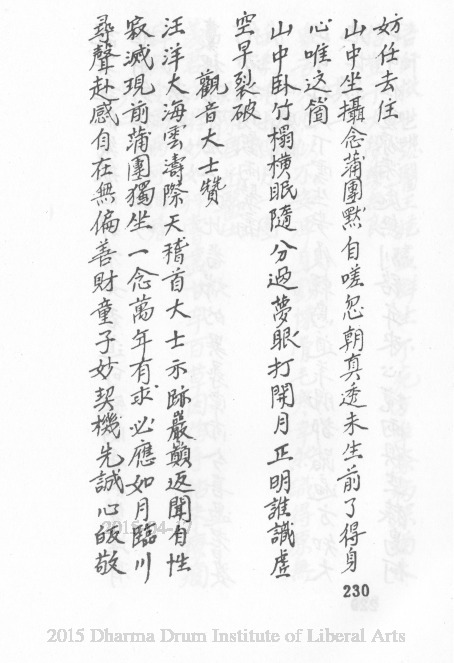 妨任去住
山中坐攝念蒲團默自嗟忽朝真透未生前了得身
心唯这箇
山中卧竹榻橫眠隨分過夢眼打開月正明誰識虛
空早裂破
觀音大士贊
汪洋大海雲濤際天稽首大士示跡巖巔返聞自性
寂滅現前蒲團獨坐一念萬年有求必應如月臨川
尋聲赴感自在無偏善財童子妙契機先誠心皈敬
230
2015 Dharma Drum Institute of Liberal Arts